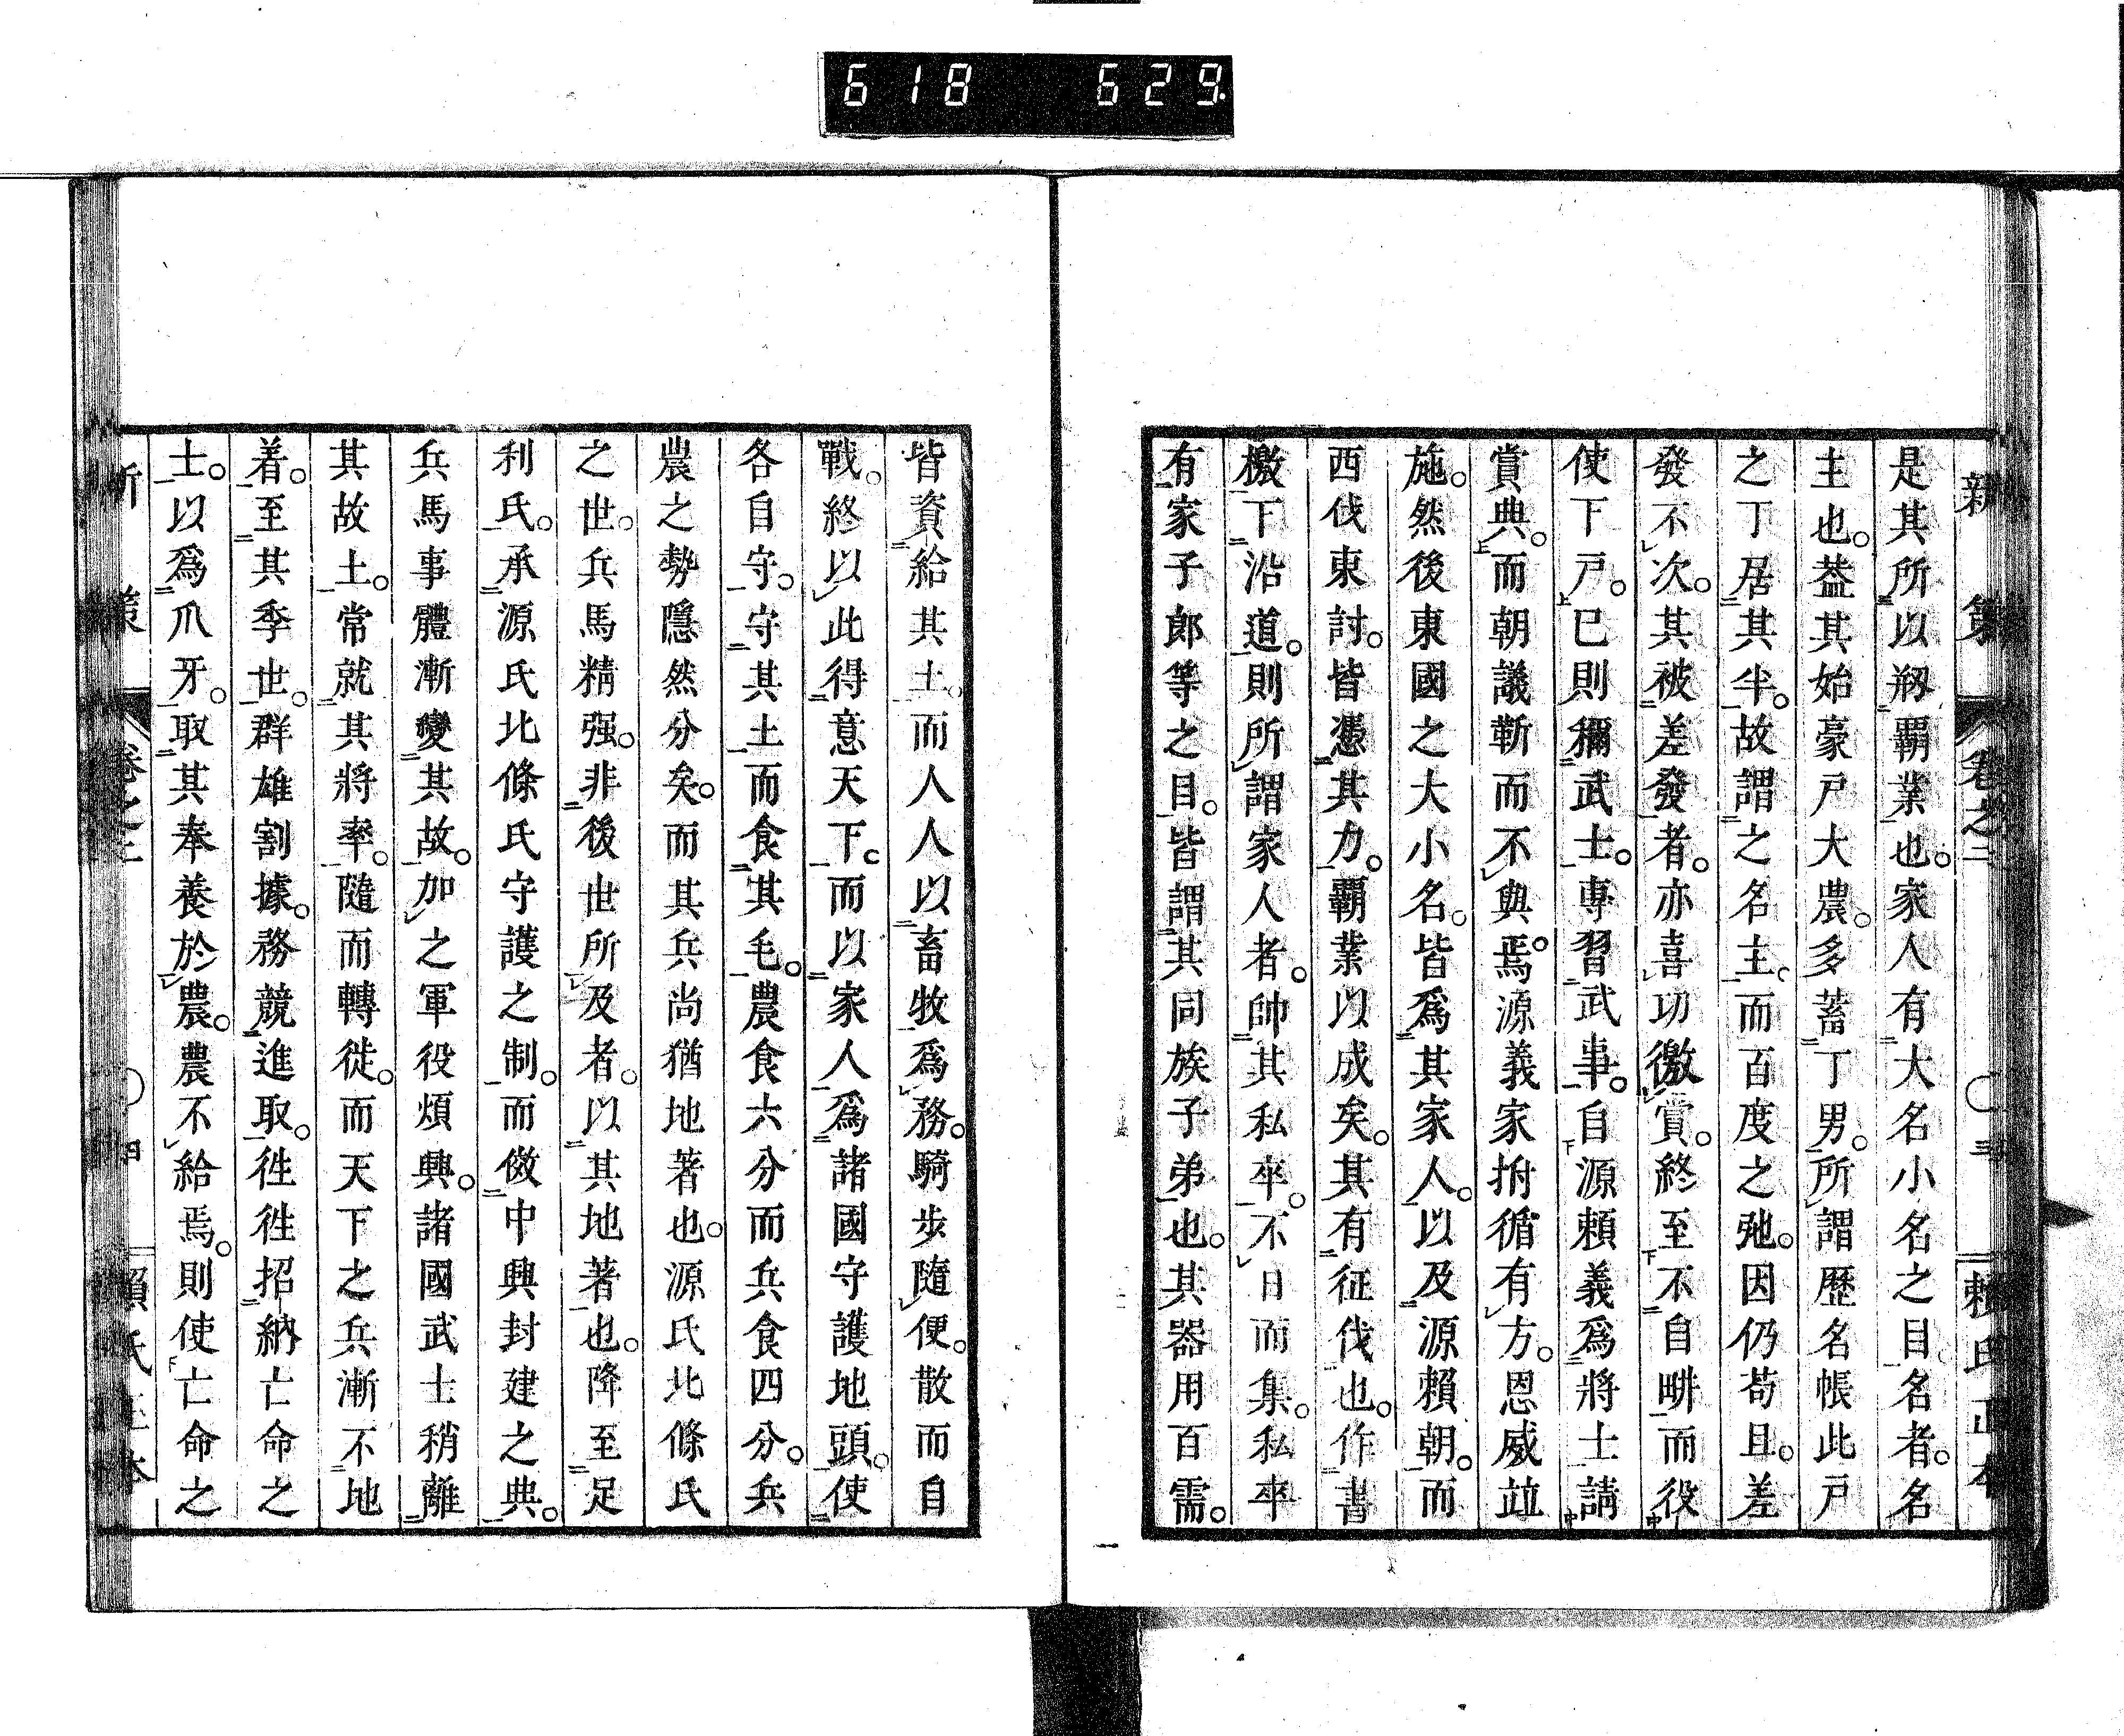 618 629.
新策 卷之二 〇三 賴氏正本
是其所以剏覇業也。家人有大名小名之目。名者。名
主也。葢其始豪戸大農。多蓄丁男。所謂歷名帳此戸
之丁居其半。故謂之名主。而百度之弛。因仍苟且。差
發不次。其被差發者。亦喜功徼賞。終至不自畊而役
使下戸。已則稱武士。專習武事。自源賴義爲將士請
賞典。而朝議靳而不與焉。源義家拊循有方。恩威竝
施。然後東國之大小名。皆爲其家人。以及源賴朝。而
西伐東討。皆憑其力。覇業以成矣。其有征伐也。作書
檄下沿道。則所謂家人者。帥其私卒。不日而集。私卒
有家子郎等之目。皆謂其同族子弟也。其器用百需。
皆資給其土。而人人以畜牧爲務。騎步隨便。散而自
戰。終以此得意天下。而以家人爲諸國守護地頭。使
各自守。守其土而食其毛。農食六分而兵食四分。兵
農之勢隱然分矣。而其兵尚猶地著也。源氏北條氏
之世。兵馬精强。非後世所及者。以其地著也。降至足
利氏。承源氏北條氏守護之制。而倣中興封建之典。
兵馬事體漸變其故。加之軍役煩興。諸國武士稍離
其故土。常就其將率。隨而轉徙。而天下之兵漸不地
着。至其季世。群雄割據。務競進取。徃徃招納亡命之
士。以爲爪牙。取其奉養於農。農不給焉。則使亡命之
新策 卷之二 〇四 賴氏正本